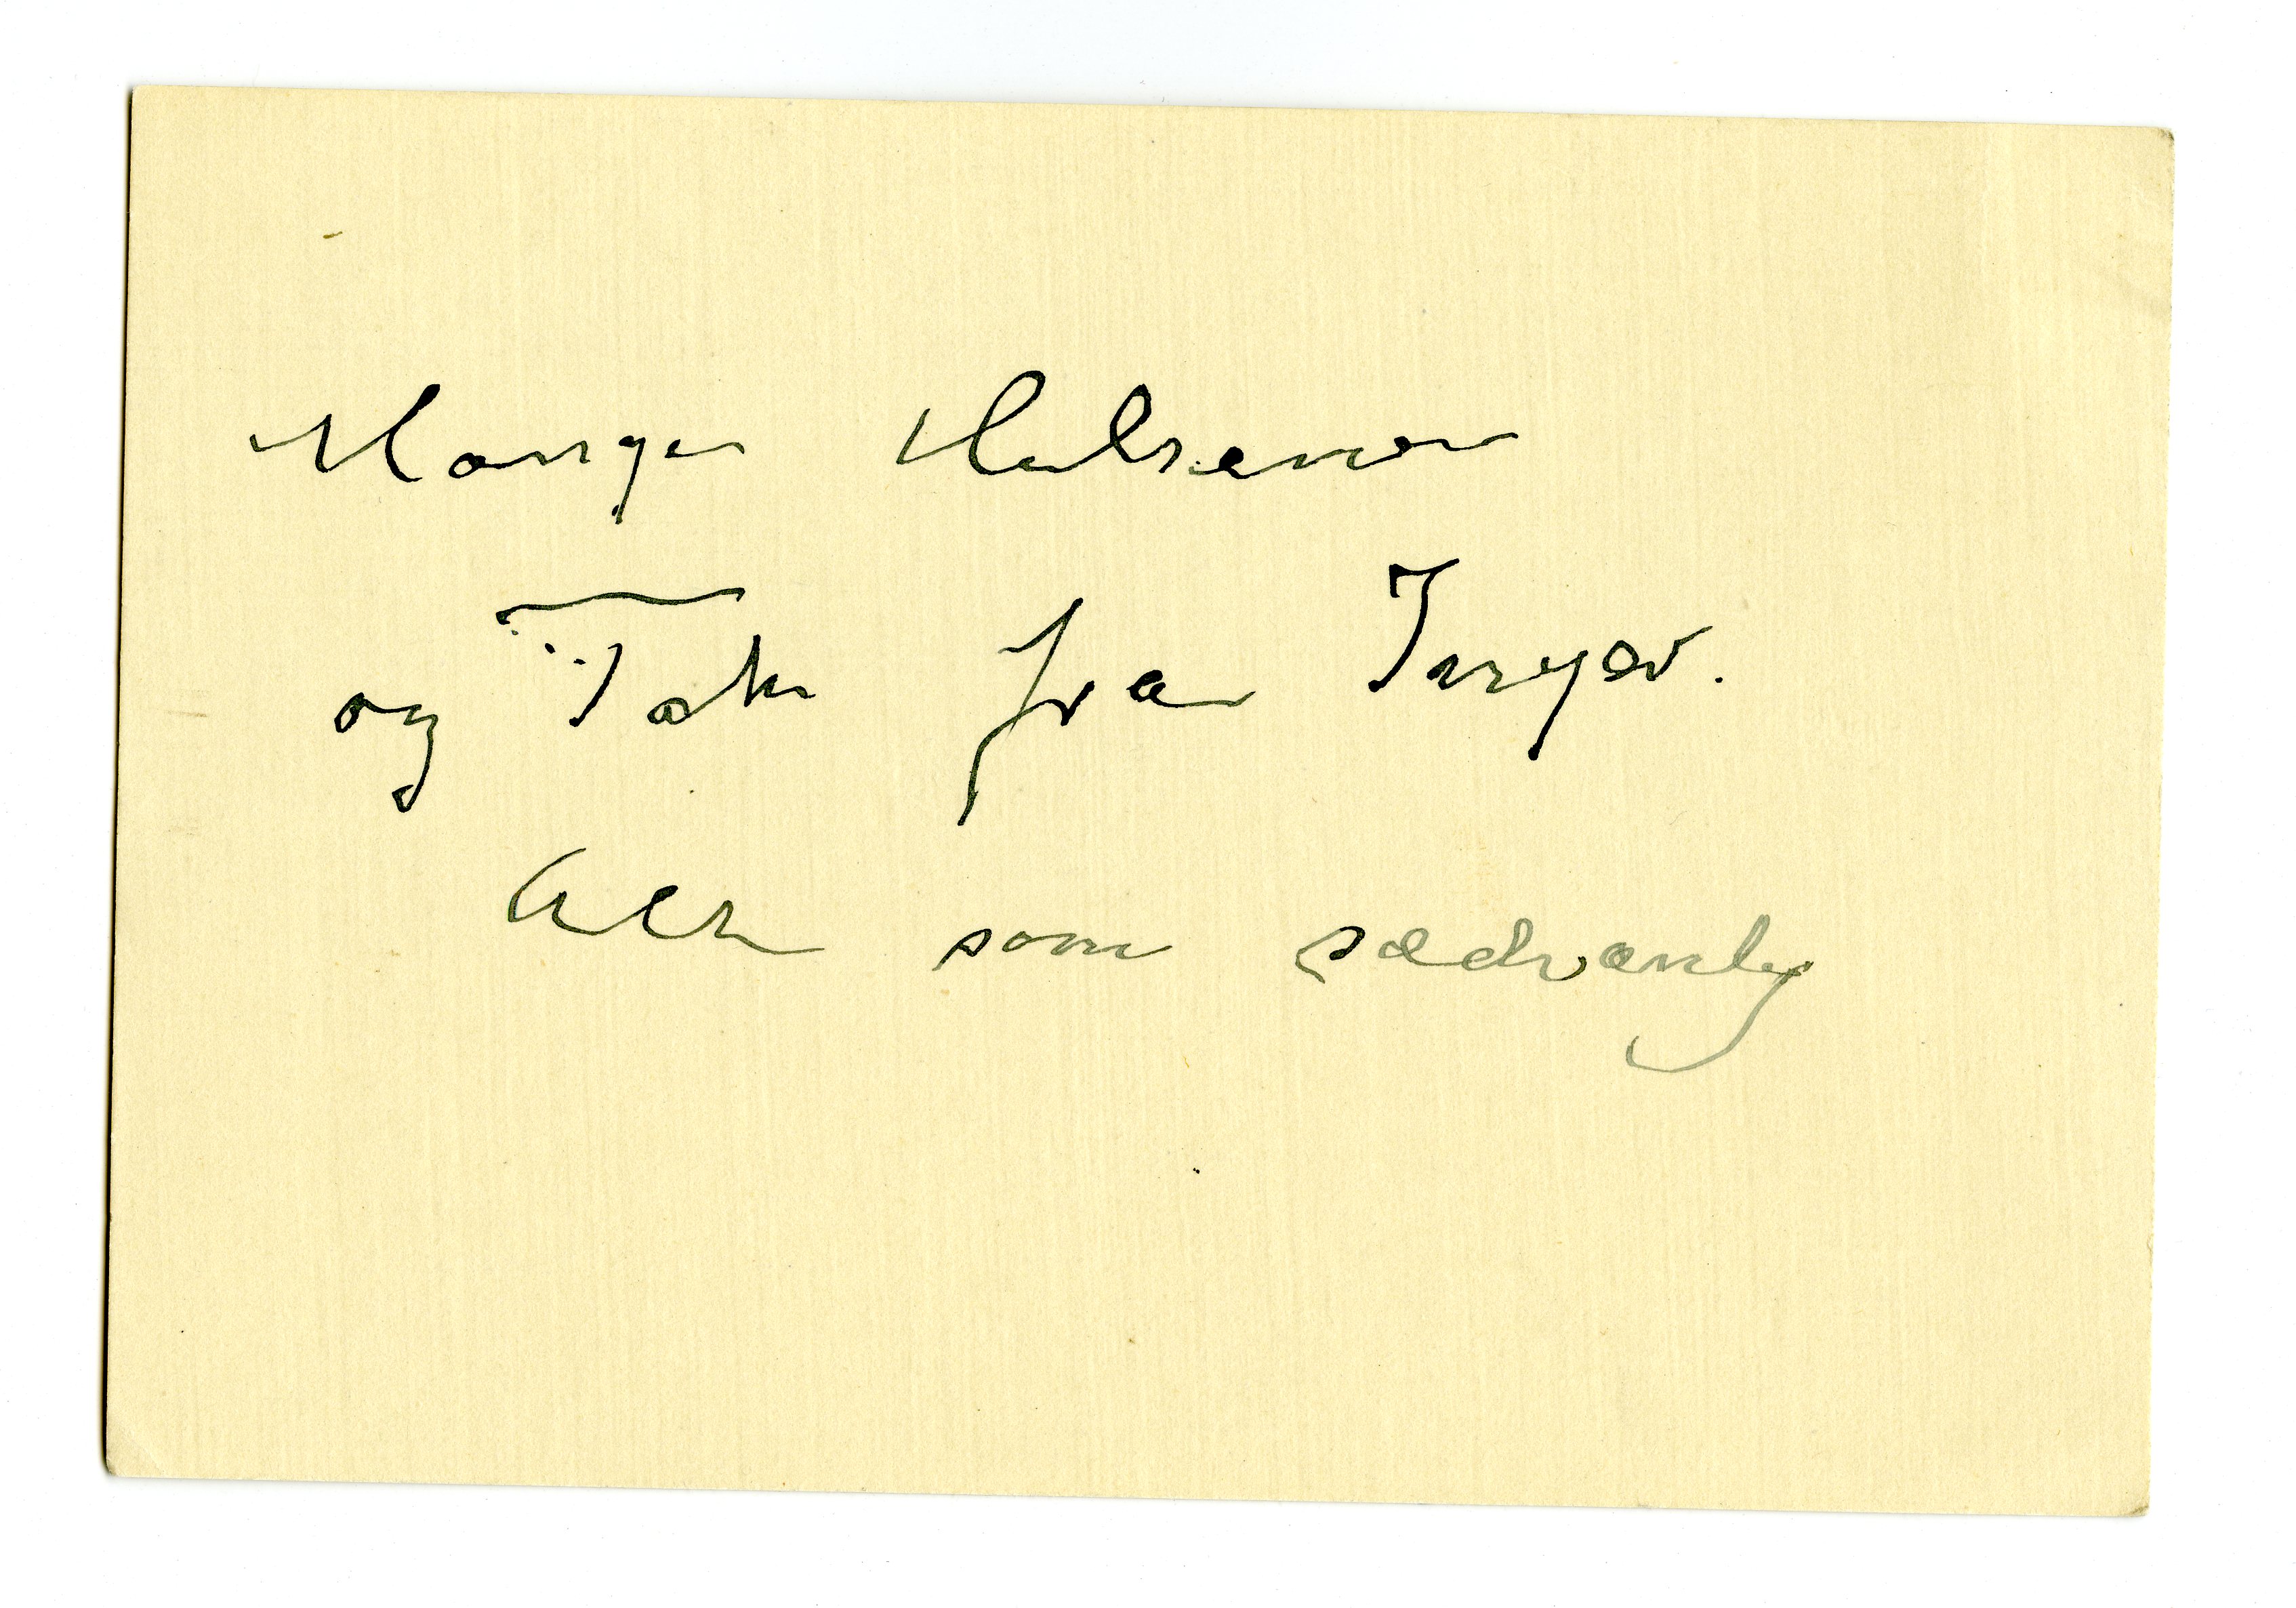 Mange Hilsener
og Tak fra Ingeb.
Alt som sædvanlig